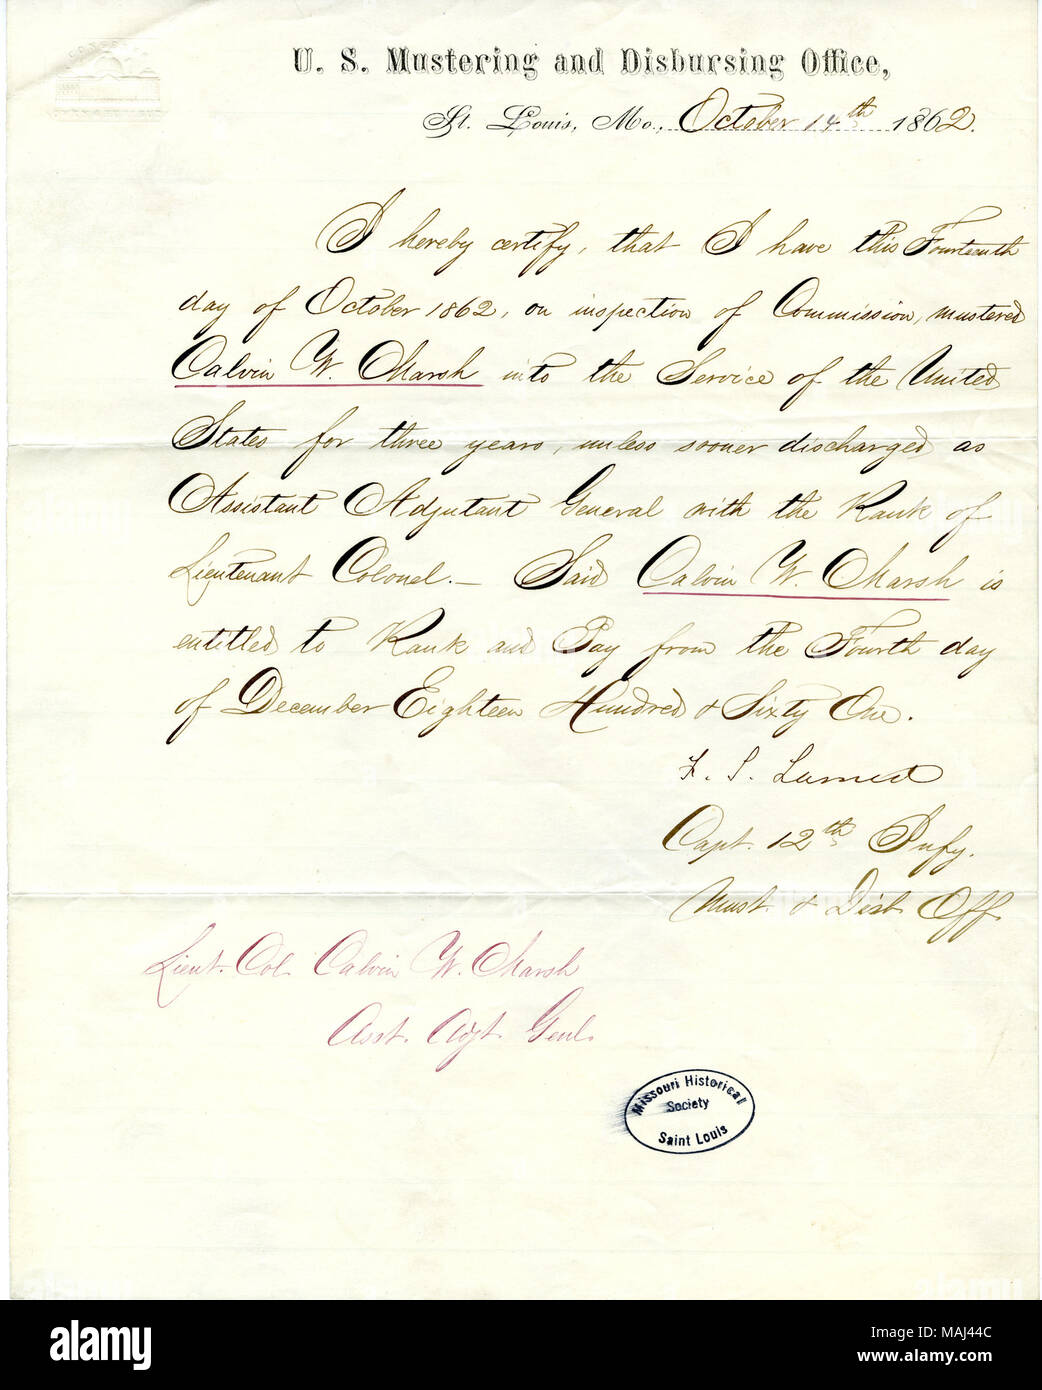 U. S. Mustering and Disbursing Office,
St. Louis, Mo., October 14th 1862.
I hereby certify, that I have this Fourteenth
day of October 1862, on inspection of Commission, mustered
Calvin W. Marsh into the Service of the United
States for three years, unless sooner discharged as
Assistant Adjutant General with the Rank of
Lieutenant Colonel. — Said Calvin W. Marsh is
entitled to Rank and Pay from the Fourth day
of December Eighteen Hundred & Sixty One.
F. S. Larned
Capt. 12th Infy.
Must. & Disb. Off.
Lieut. Col. Calvin W. Marsh
Asst. Adjt. Genl.
Missouri Historical
Society
Saint Louis
alamy
Image ID: MAJ44C
www.alamy.com